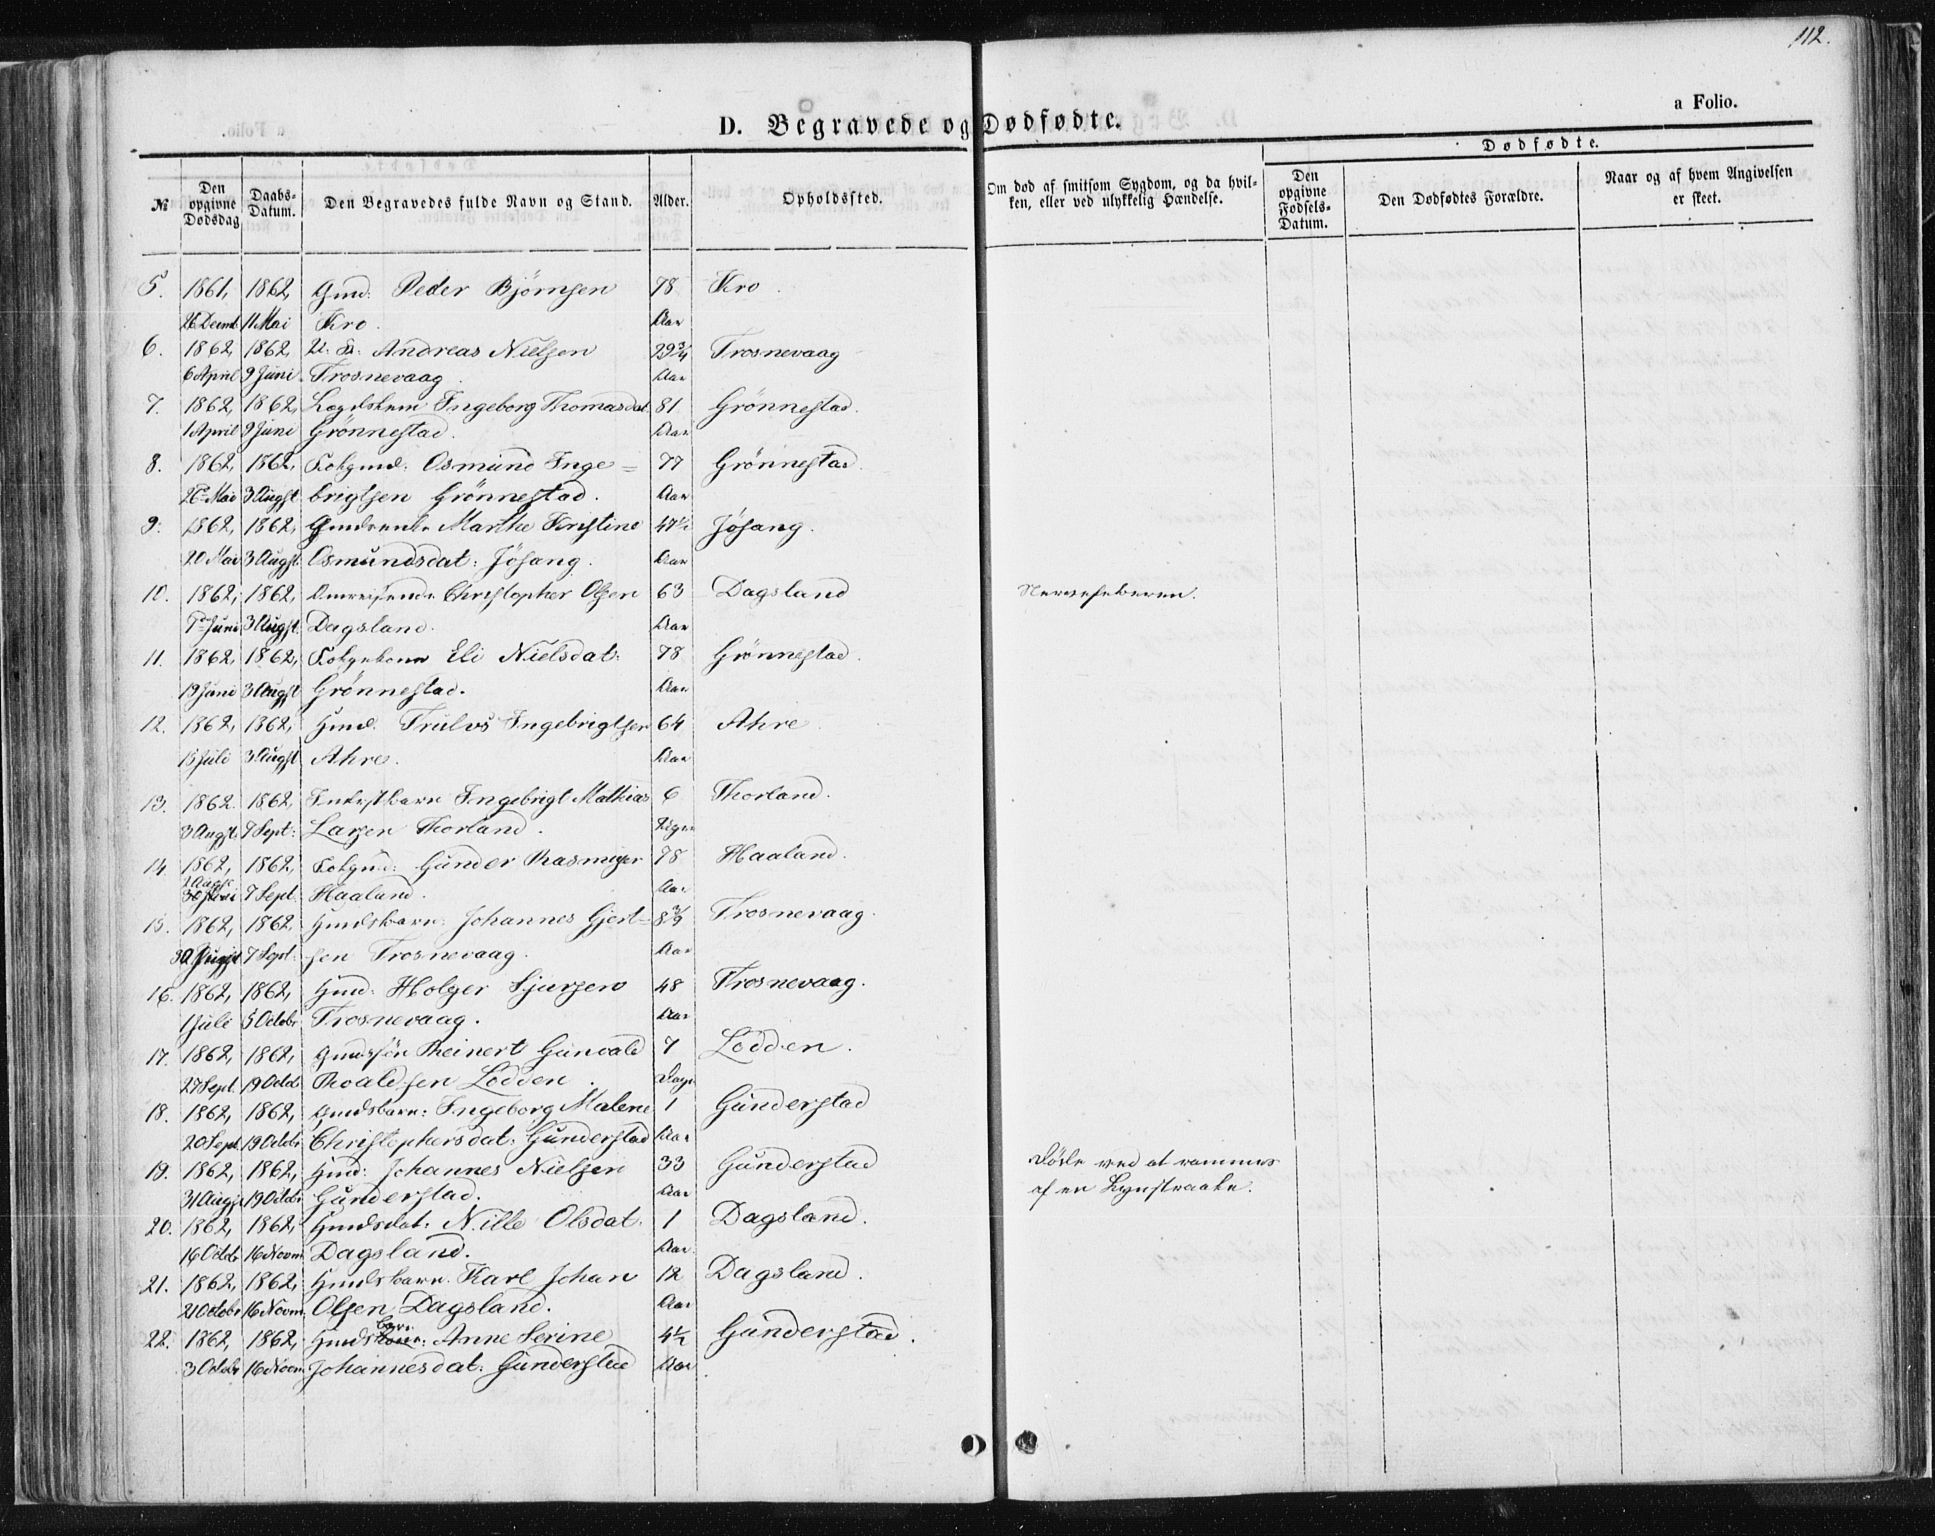 112.
a Folio.
D. Begravede og Dødfødte.
Dødfødte.
№ Den opgivne Dødsdag Daabs-Datum. Den Begravedes fulde Navn og Stand. Alder. Opholdssted. Om død af smitsom Sygdom, og da hvilken, eller ved ulykkelig Hændelse. Den opgivne Fødsels-Datum. Den Dødfødtes Forældre. Naar og af hvem Angivelsen er skeet.
5. 1861, 1862, Gmd. Peder Bjørnsen 78 Kro
26 Decmb 11 Mai Kro. Aar
6. 1862, 1862, U. K. Andreas Nielsen 29¾ Trosnevaag
6 April 9 Juni Trosnevaag Aar
7. 1862, 1862, Lægdslem Ingeborg Thomasdat 81 Grönnestad.
1 April 9 Juni Grönnestad. Aar
8. 1862, 1862, Folgmd: Osmund Inge= 77 Grönnestad.
26 Mai 3 Augst brigtsen Grönnestad. Aar
9. 1862, 1862, Gmdsenke Marthe Kristine 47½ Jösang.
20 Mai 3 Augst. Osmundsdat: Jösang. Aar
10. 1862, 1862, Omreisende Christopher Olsen 63 Dagsland Nervefeberen.
7 Juni 3 Augst. Dagsland. Aar
11. 1862, 1862, Folgekone Eli Nielsdat: 78 Grönnestad.
19 Juni 3 Augst Grönnestad. Aar
12. 1862, 1862, Hmd. Trulvs Ingebrigtsen 64 Ahre
15 Juli 3 Augst Ahre. Aar
13. 1862. 1862, Inderstbarn Ingebrigt Mathias 6 Thorland.
3 Augst. 7 Sept: Larsen Thorland. Uger
14. 1862, 1862, Folgmd: Gunder Rasmusen 78 Haaland.
7 Sept. Haaland. Aar
15. 1862, 1862, Hmdsbarn: Johannes Gjert- 8 Trosnevaag.
7 Sept: sen Trosnevaag. Aar
16. 1862, 1862, Hmd. Holger Sjursen 48 Trosnevaag.
1 Juli 5 Octobr Trosnevaag. Aar
17. 1862, 1862, Gmdssön Reinert Gunvald 7 Lodden.
27 Sept. 19 Octob. Roaldsen Lodden. Dage
18. 1862, 1862, Gmdsbarn: Ingeborg Malene 1 Gunderstad
20 Sept. 19 Octobr Christophersdat: Gunderstad Aar
19. 1862, 1862, Hmd: Johannes Nielsen 33 Gunderstad Döde ved at rammes
31 Augst 19 Octobr Gunderstad. Aar af en Lynstraale.
20. 1862, 1862, Hmdsdat: Nille Olsdat. 1 Dagsland.
16 Octobr 16 Novm Dagsland. Aar
21. 1862, 1862, Hmdsbarn. Karl Johan 12 Dagsland.
21 Octobr 16 Novm. Olsen Dagsland. Aar
barn
22. 1862, 1862, Hmds: Anne Serine 4½ Gunderstad.
3 Octobr 16 Novm Johannesdat: Gunderstad Aar